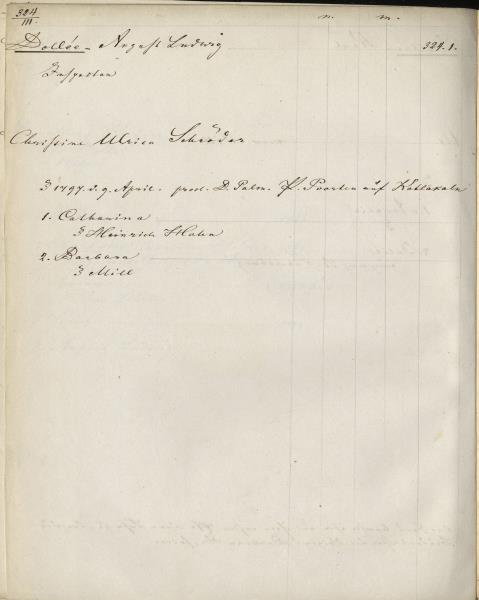 384
III.
n. m.
Dollée - August Ludwig 329.1.
Inspector
Christine Ulrica Schröder
1797 d. 9. April. D. Palm. P. Poorten auf Kattakaln
1. Catharina
Heinrich Hahn
2. Barbara
Mill